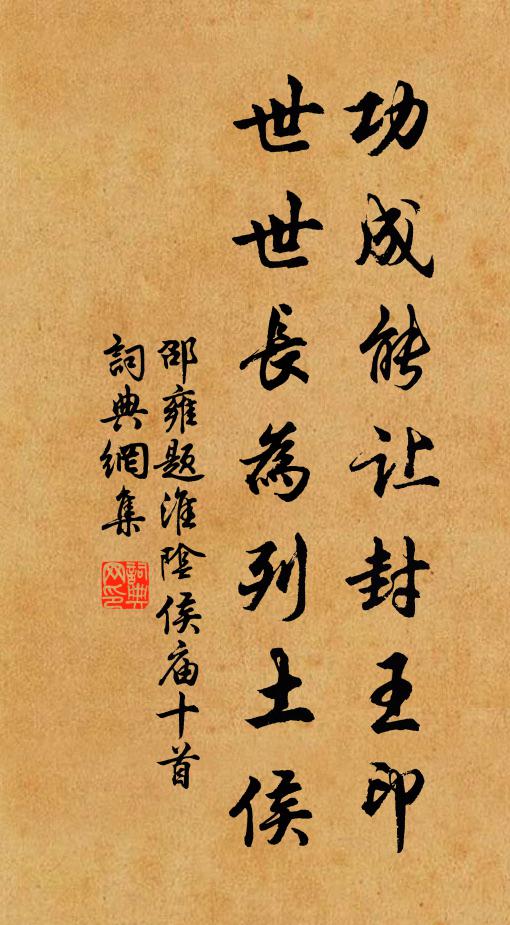 功成能让封王印
世世長為列土侯
邵雍題淮陰侯庙十首
詞典網集
詞典网印